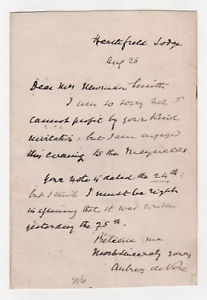 Heathfield Lodge
Aug 26
Dear Mrs Newman Smith
I am so sorry that I
cannot profit by your kind
invitation: but I am engaged
this evening to the
Your note is dated the 24th:
but I think I must be right
in opining that it was written
yesterday the 25th.
Believe me
Most sincerely yours
Aubrey de Vere